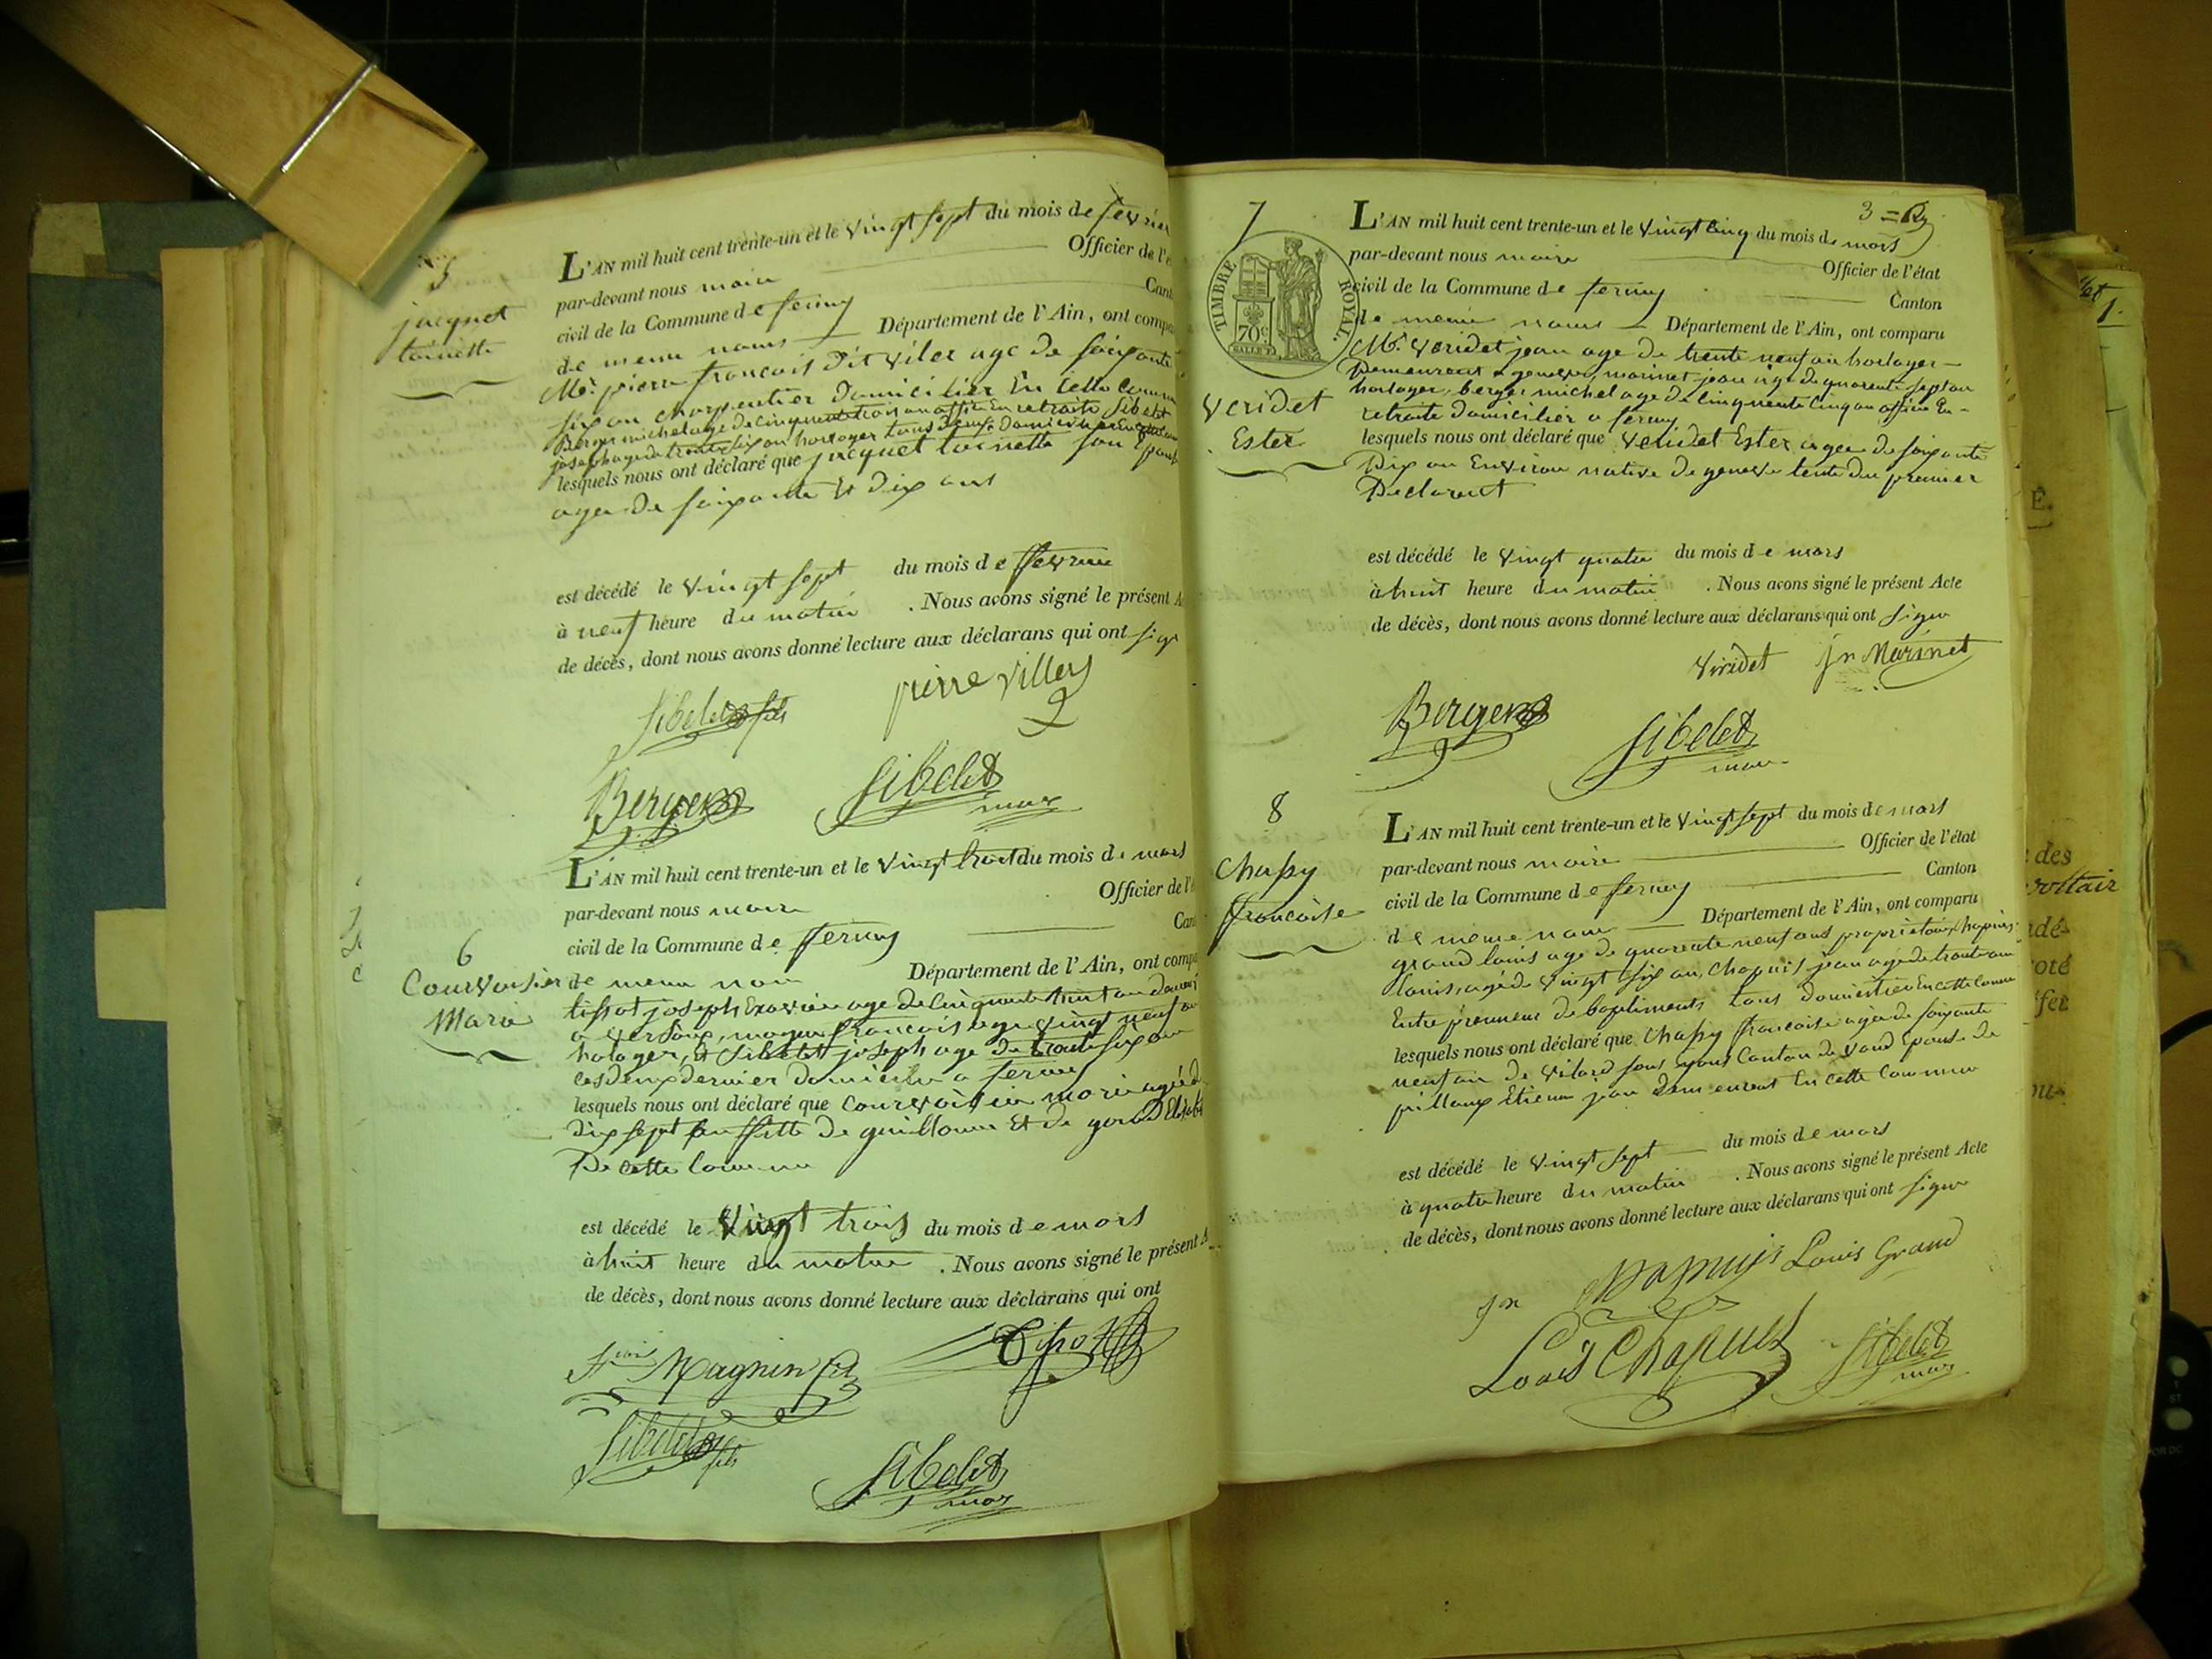 5
jacquet
toinette
L'AN mil huit cent trente-un et le vingt sept du mois de fevrier
par-devant nous maire Officier de l'é
civil de la Commune de ferney Cant
de meme nom Département de l'Ain, ont compa
Mr. pierre francois Dit viler age de soixante
six an charpentier Domicilier En Cette Commun
Berger michel age de cinquante trois an officier En retraite Sibelet
joseph age de trente six an horloger tous deux Domicilier En
lesquels nous ont déclaré que jacquet toinette son Epouse
agee De soixante Et Dix ans
est décédé le vingt sept du mois de fevrier
à neuf heure du matin . Nous avons signé le présent A
de décès, dont nous avons donné lecture aux déclarans qui ont signé
Sibelet fils
pierre villers
Berger
Sibelet
maire
6
Courvoisier
Marie
L'AN mil huit cent trente-un et le vingt trois du mois de mars
par-devant nous maire Officier de l'é
civil de la Commune de ferney Can
de meme nom Département de l'Ain, ont compa
tissot joseph Exavier age de cinquante huit an demeur
a versoix, magnin francois age vingt neuf an
horloger, Et Sibelet joseph age de trente six an
ces deux dernier domicilie a ferney
lesquels nous ont déclaré que Courvoisier marie agée d
dix sept an fille De guillaume Et de
De cette Commune
est décédé le vingt trois du mois de mars
à huit heure du matin . Nous avons signé le présent A
de décès, dont nous avons donné lecture aux déclarans qui ont
Magnin fs
Tissot
Sibelet fils
Sibelet
maire
3
7
TIMBRE ROYAL
70c
veridet
Ester
L'AN mil huit cent trente-un et le vingt cinq du mois de mars
par-devant nous maire Officier de l'état
civil de la Commune de ferney Canton
de meme nom Département de l'Ain, ont comparu
Mr. veridet jean age De trente neuf an horloger
Demeurant a geneve, marinet jean age de quarente sept an
horloger, berger michel age de cinquente cinq an officier En
retraite domicilier a ferney
lesquels nous ont déclaré que veridet Ester agee de soixante
Dix an Environ native De geneve tente du premier
Declarent
est décédé le vingt quatre du mois de mars
à huit heure du matin . Nous avons signé le présent Acte
de décès, dont nous avons donné lecture aux déclarans qui ont signé
Viridet jn Marinet
Berger
Sibelet
maire
8
Chapy
francoise
L'AN mil huit cent trente-un et le vingt sept du mois de mars
par-devant nous maire Officier de l'état
civil de la Commune de ferney Canton
de meme nom Département de l'Ain, ont comparu
grand louis age de quarente neuf ans propriétaire, chapuis
louis, agé de vingt six an, chapuis jean agé de trente an
Entreprenneur de batiments tous domicilier En cette Commune
lesquels nous ont déclaré que Chapy francoise agee de soixante
neuf an de vilard sous yens Canton de vaud Epouse de
pilloux Etienne jean demeurent En cette Commune
est décédé le vingt sept du mois de mars
à quatre heure du matin . Nous avons signé le présent Acte
de décès, dont nous avons donné lecture aux déclarans qui ont signé
jn chapuis Louis Grand
Louis Chapuis
Sibelet
maire
1.
É.
des
voltair